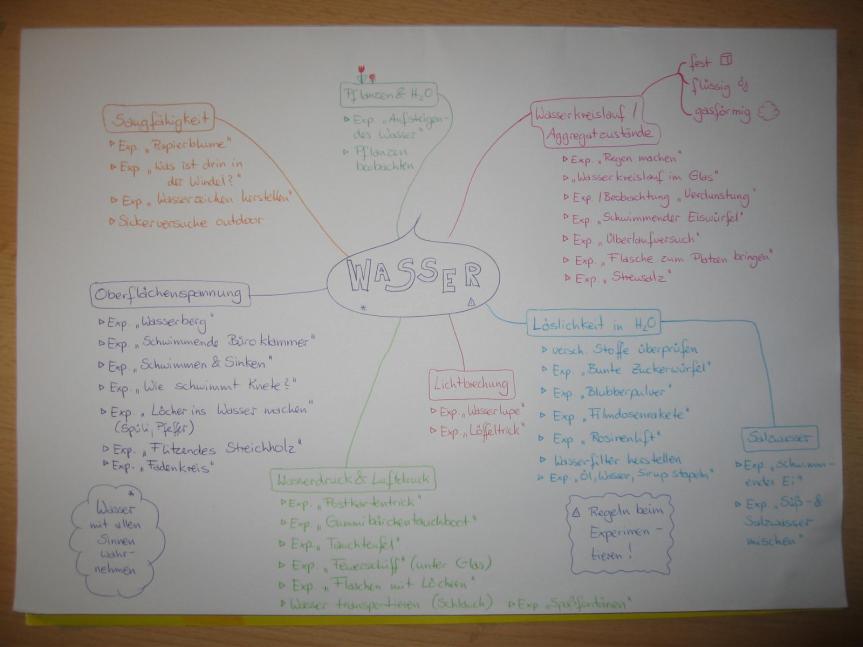 WASSER
*
△
Saugfähigkeit
▹ Exp. „Papierblume"
▹ Exp. „Was ist drin in
der Windel?"
▹ Exp. „Wasserzeichen herstellen"
▹ Sickerversuche outdoor
Pflanzen & H₂O
▹ Exp. „Aufsteigen-
des Wasser"
▹ Pflanzen
beobachten
Wasserkreislauf /
Aggregatzustände
fest
flüssig
gasförmig
▹ Exp. „Regen machen"
▹ „Wasserkreislauf im Glas"
▹ Exp. / Beobachtung „Verdunstung"
▹ Exp. „Schwimmender Eiswürfel"
▹ Exp. „Überlaufversuch"
▹ Exp. „Flasche zum Platzen bringen"
▹ Exp. „Streusalz"
Oberflächenspannung
▹ Exp. „Wasserberg"
▹ Exp. „Schwimmende Büroklammer"
▹ Exp. „Schwimmen & Sinken"
▹ Exp. „Wie schwimmt Knete?"
▹ Exp. „Löcher ins Wasser machen"
(Spüli, Pfeffer)
▹ Exp. „Flitzendes Streichholz"
▹ Exp. „Fadenkreis"
Lichtbrechung
▹ Exp. „Wasserlupe"
▹ Exp. „Löffeltrick"
Löslichkeit in H₂O
▹ versch. Stoffe überprüfen
▹ Exp. „Bunte Zuckerwürfel"
▹ Exp. „Blubberpulver"
▹ Exp. „Filmdosenrakete"
▹ Exp. „Rosinenlift"
▹ Wasserfilter herstellen
▹ Exp. „Öl, Wasser, Sirup stapeln"
Salzwasser
▹ Exp. „Schwimm-
endes Ei"
▹ Exp. „Süß- &
Salzwasser
mischen"
Wasserdruck & Luftdruck
▹ Exp. „Postkartentrick"
▹ Exp. „Gummibärchentauchboot"
▹ Exp. „Tauchteufel"
▹ Exp. „Feuerschiff" (unter Glas)
▹ Exp. „Flaschen mit Löchern"
▹ Wasser transportieren (Schlauch) ▹ Exp. „Spaßfontänen"
*
Wasser
mit allen
Sinnen
wahr-
nehmen
△ Regeln beim
Experimen-
tieren!